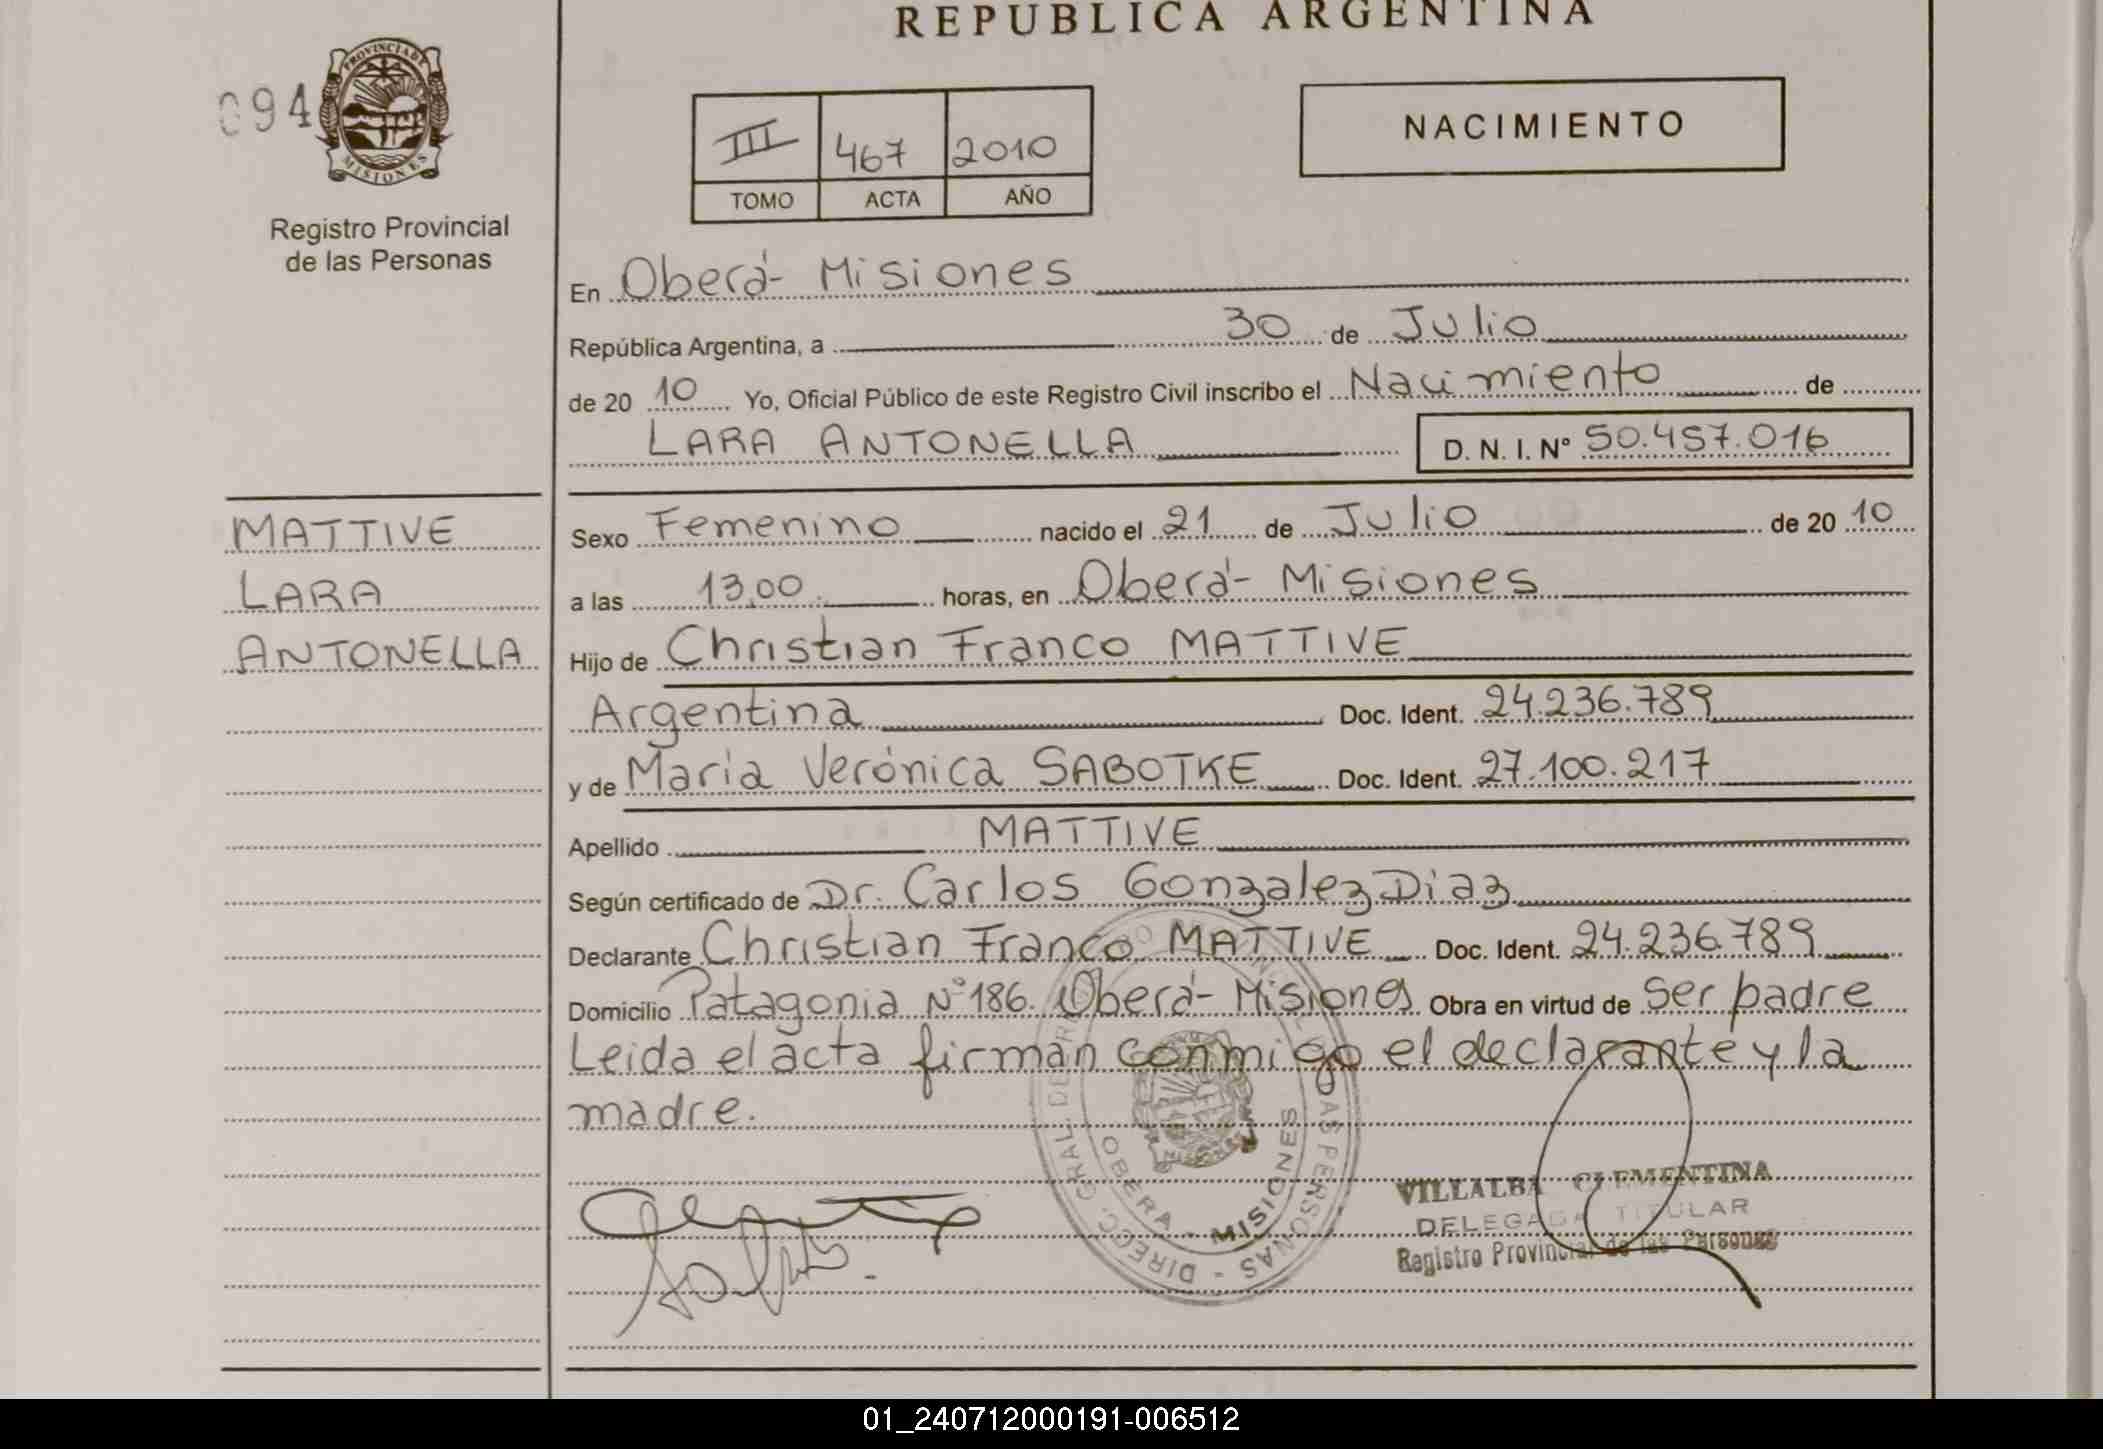 REPUBLICA ARGENTINA
094
PROVINCIA DE MISIONES
Registro Provincial
de las Personas
III 467 2010
TOMO ACTA AÑO
NACIMIENTO
En Oberá- Misiones
República Argentina, a 30 de Julio
de 20 10 Yo, Oficial Público de este Registro Civil inscribo el Nacimiento de
LARA ANTONELLA D. N. I. Nº 50.457.016
MATTIVE
LARA
ANTONELLA
Sexo Femenino nacido el 21 de Julio de 20 10
a las 13,00 horas, en Oberá- Misiones
Hijo de Christian Franco MATTIVE
Argentina Doc. Ident. 24.236.789
y de María Verónica SABOTKE Doc. Ident. 27.100.217
Apellido MATTIVE
Según certificado de Dr. Carlos Gonzalez Diaz
Declarante Christian Franco MATTIVE Doc. Ident. 24.236.789
Domicilio Patagonia Nº 186. Oberá- Misiones Obra en virtud de Ser padre
Leida el acta firman conmigo el declarante y la
madre.
OBERA - MISIONES
VILLALBA CLEMENTINA
DELEGADA TITULAR
Registro Provincial de las Personas
01_240712000191-006512